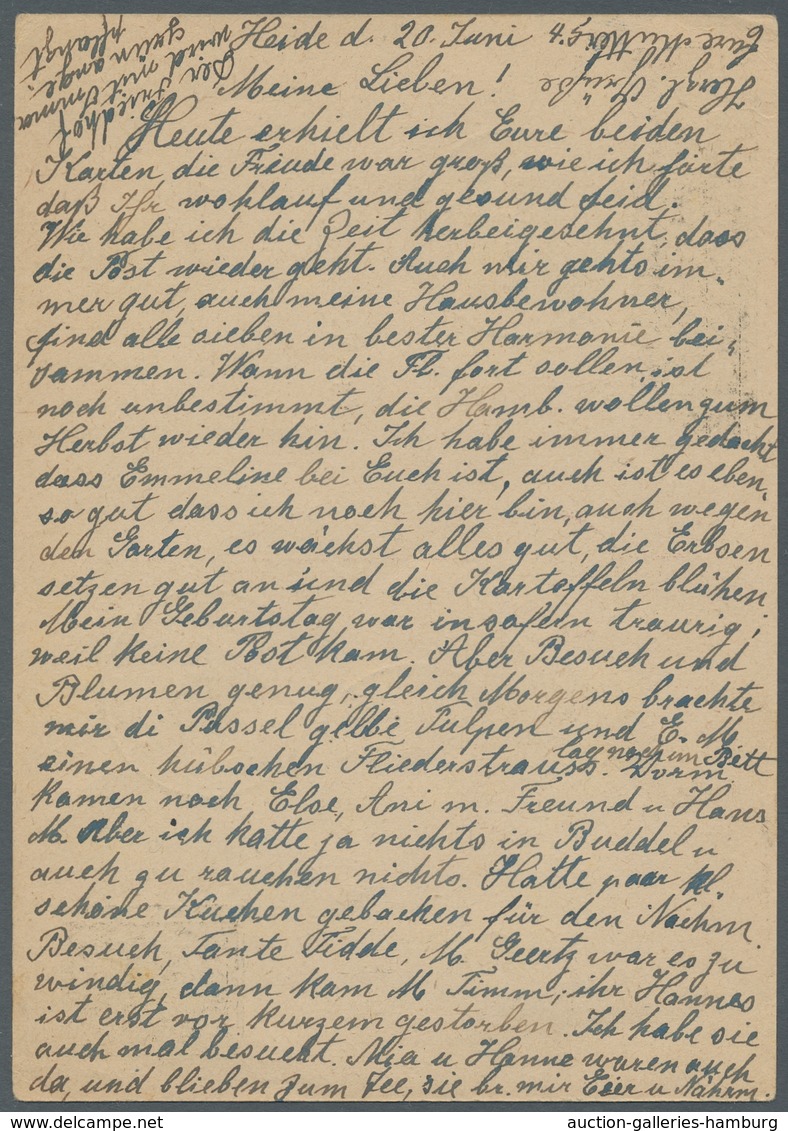 Heide d. 20. Juni 45
Meine Lieben!
Heute erhielt ich Eure beiden
Karten, die Freude war groß, wie ich hörte
daß Ihr wohlauf und gesund seid.
Wie habe ich die Zeit herbeigesehnt, dass
die Post wieder geht. Auch mir gehts im-
mer gut, auch meine Hausbewohner,
sind alle sieben in bester Harmonie bei-
sammen. Wann die Fl. fort sollen, ist
noch unbestimmt, die Hamb. wollen zum
Herbst wieder hin. Ich habe immer gedacht
dass Emmeline bei Euch ist, auch ist es eben-
so gut dass ich noch hier bin, auch wegen
den Garten, es wächst alles gut, die Erbsen
setzen gut an und die Kartoffeln blühen
Mein Geburtstag war insofern traurig,
weil keine Post kam. Aber Besuch und
Blumen genug, gleich Morgens brachte
mir di Passel gelbe Tulpen und E. M.
lag noch im Bett
einen hübschen Fliederstrauss. Vorm
kamen noch Else, Ani m. Freund u Hans
M. Aber ich hatte ja nichts in Buddel u
auch zu rauchen nichts. Hatte paar kl.
schöne Kuchen gebacken für den Nachm.
Besuch, Tante Tidde, M. Geertz war es zu
windig, dann kam M Timm, ihr Hannes
ist erst vor kurzem gestorben. Ich habe sie
auch mal besucht. Mia u Hanne waren auch
da, und blieben zum Tee, sie br. mir Eier u Nährm.
Herzl. Grüße
Eure Mutter
Der Friedhof
wird mit Immer
grün ange-
pflanzt
auction-galleries-hamburg